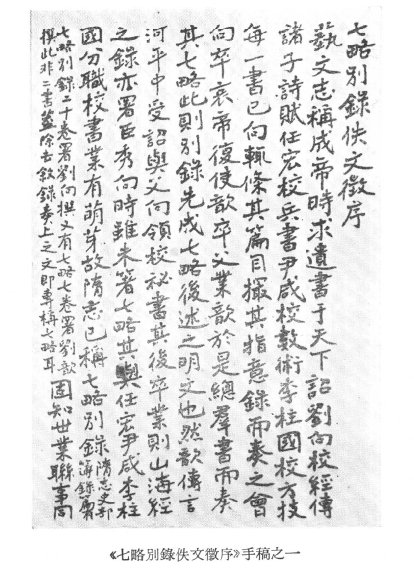 七略別錄佚文徵序
藝文志稱成帝時求遺書于天下詔劉向校經傳
諸子詩賦任宏校兵書尹咸校數術李柱國校方技
每一書已向輒條其篇目撮其指意錄而奏之會
向卒哀帝復使歆卒父業歆於是總羣書而奏
其七略此則別錄先成七略後述之明文也然歆傳言
河平中受詔與父向領校祕書其後卒業則山海經
之錄亦署臣秀向時雖未箸七略其與任宏尹咸李柱
國分職校書業有萌芽故隋志已稱七略別錄隋志史部簿錄篇
七略別錄二十卷署劉向撰又有七略七卷署劉歆
撰此非二書蓋除去敘錄奏上之文即專稱七略耳固知世業聯事同
《七略別錄佚文徵序》手稿之一